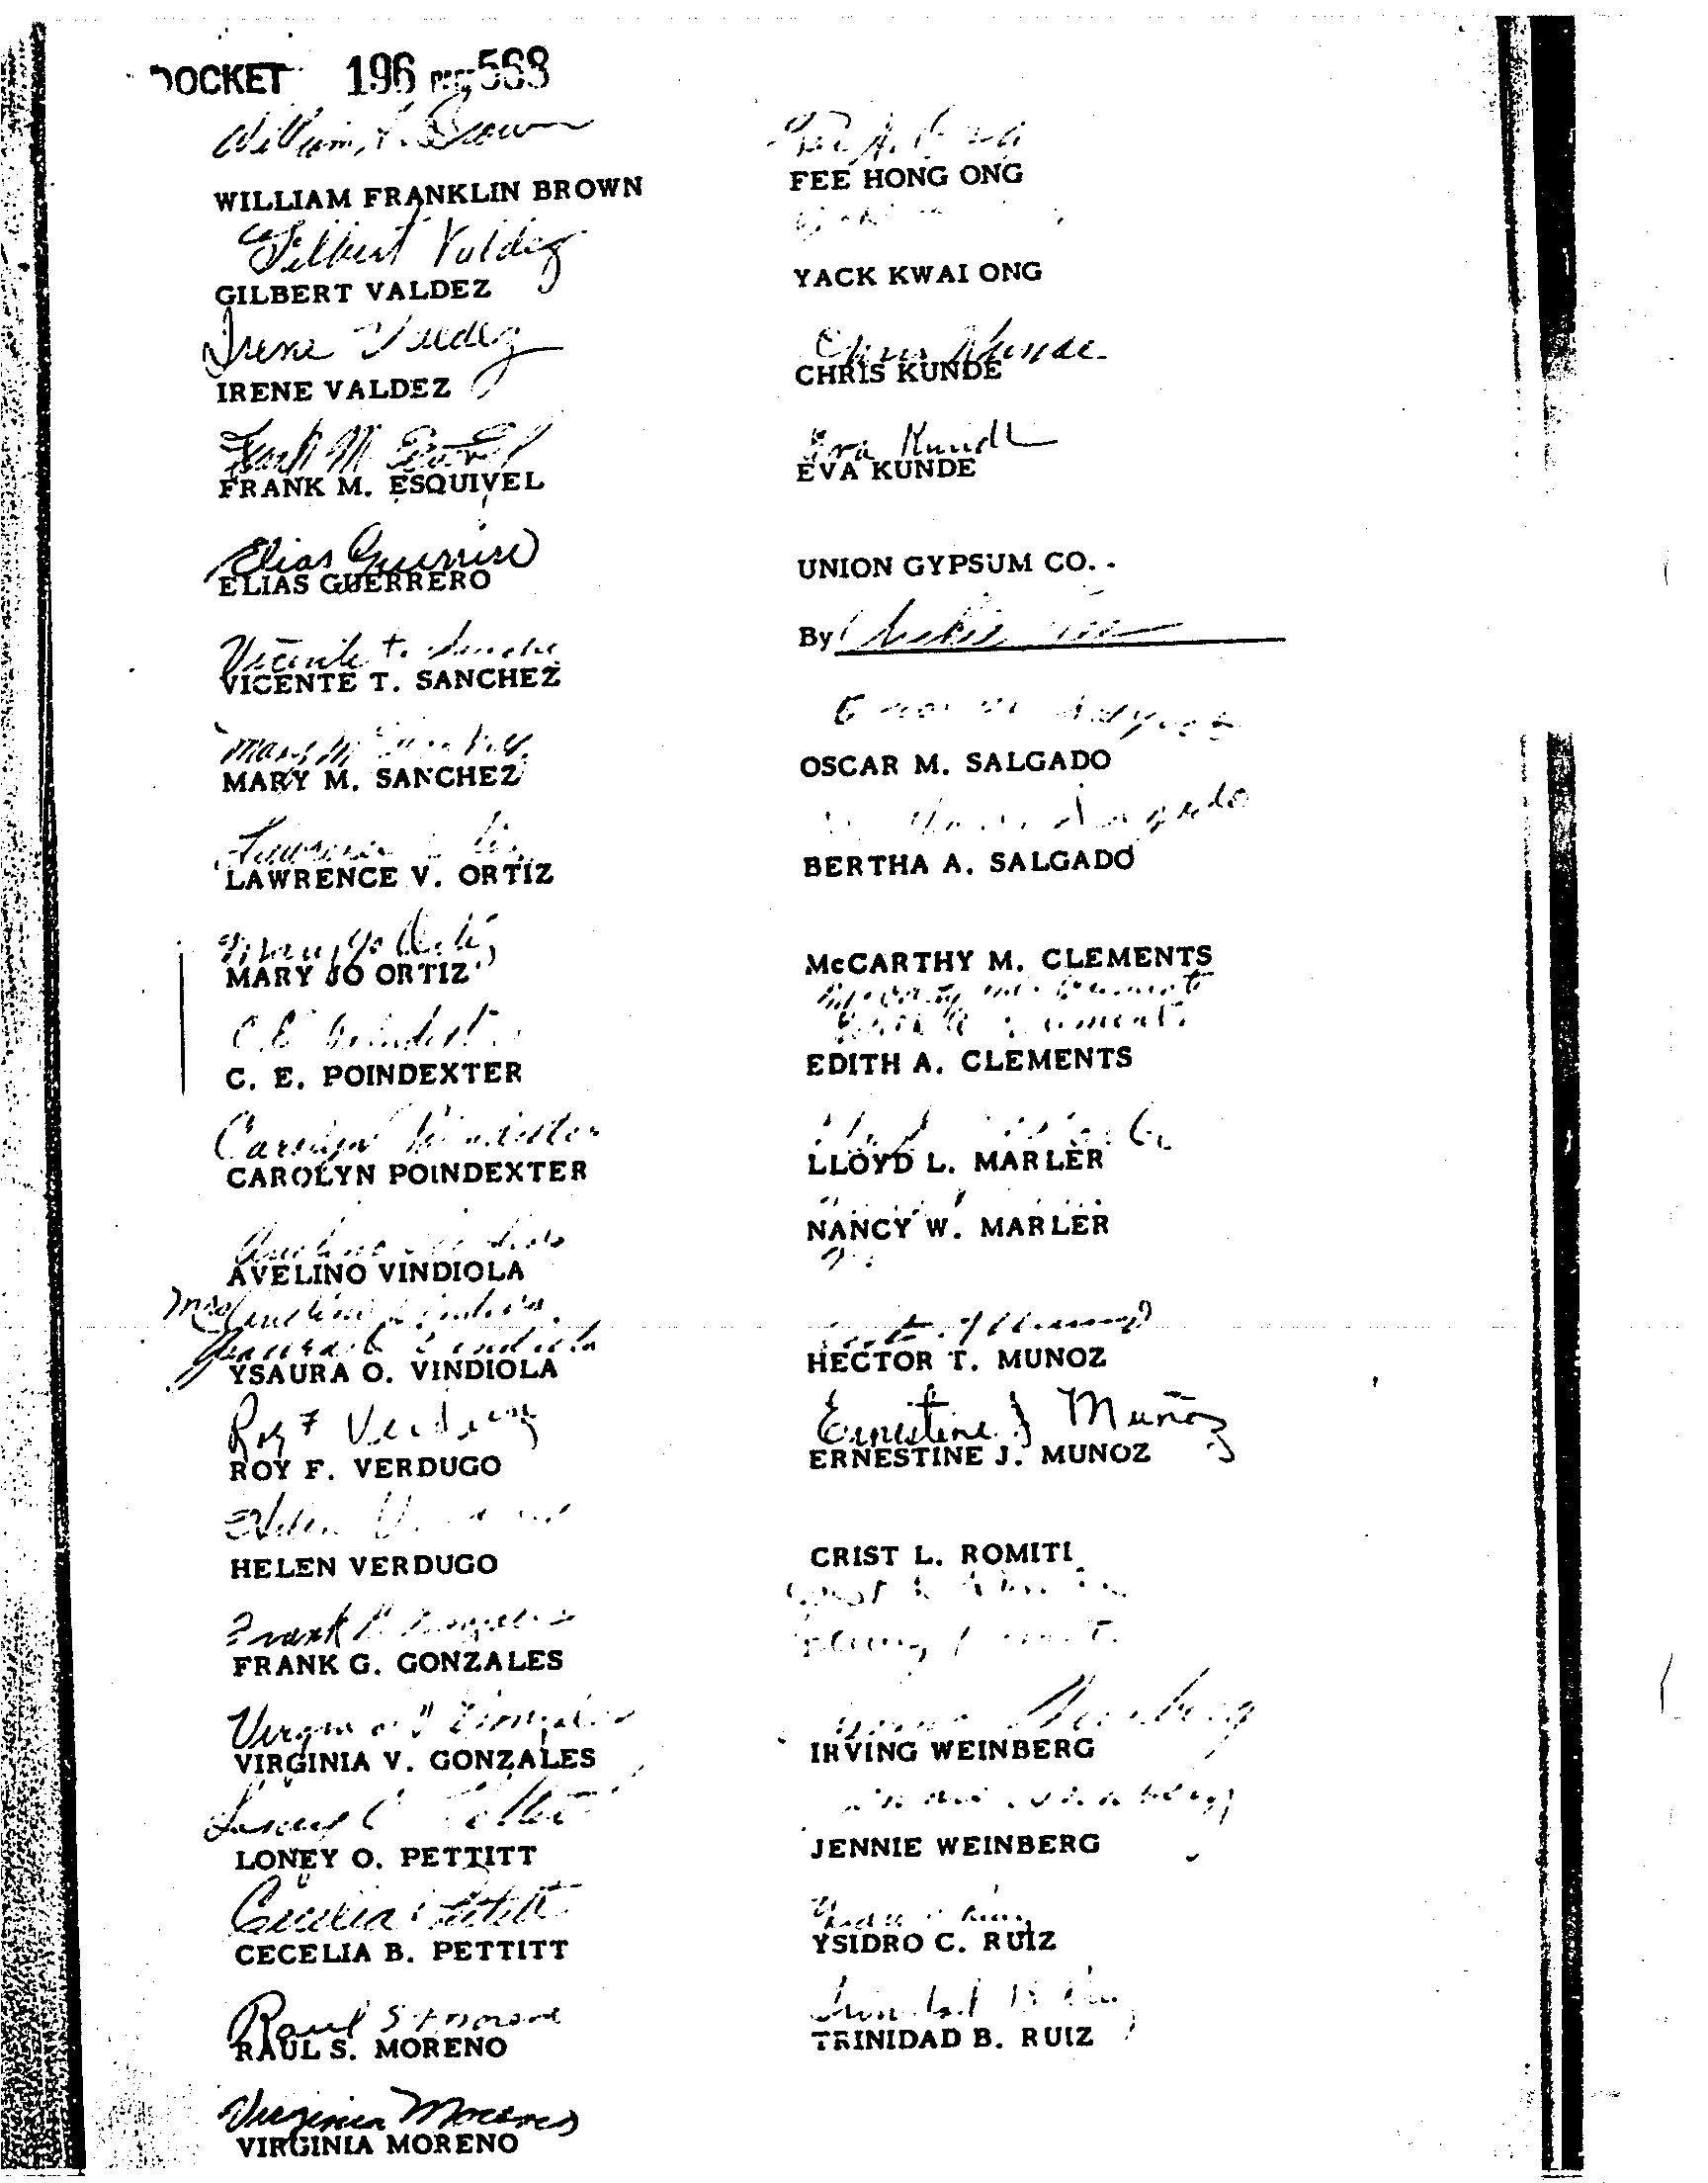 DOCKET 196
William F. Brown
WILLIAM FRANKLIN BROWN
Gilbert Valdez
GILBERT VALDEZ
Irene Valdez
IRENE VALDEZ
Frank M.
FRANK M. ESQUIVEL
Elias Guerrero
ELIAS GUERRERO
Vicente T. Sanchez
VICENTE T. SANCHEZ
Mary M.
MARY M. SANCHEZ
Lawrence
LAWRENCE V. ORTIZ
Mary Jo Ortiz
MARY JO ORTIZ
C. E. Poindexter
C. E. POINDEXTER
Carolyn Poindexter
CAROLYN POINDEXTER
Avelino Vindiola
AVELINO VINDIOLA
Mrs Avelino Vindiola
Ysaura O. Vindiola
YSAURA O. VINDIOLA
Roy F Verdugo
ROY F. VERDUGO
Helen
HELEN VERDUGO
Frank G. Gonzales
FRANK G. GONZALES
Virginia V Gonzales
VIRGINIA V. GONZALES
Loney O Pettitt
LONEY O. PETTITT
Cecelia B Pettitt
CECELIA B. PETTITT
Raul S Moreno
RAUL S. MORENO
Virginia Moreno
VIRGINIA MORENO
FEE HONG ONG
YACK KWAI ONG
Chris Kunde
CHRIS KUNDE
Eva Kunde
EVA KUNDE
UNION GYPSUM CO.
By
OSCAR M. SALGADO
Salgado
BERTHA A. SALGADO
McCARTHY M. CLEMENTS
McCarthy M. Clements
Edith A Clements
EDITH A. CLEMENTS
LLOYD L. MARLER
NANCY W. MARLER
HECTOR T. MUNOZ
Ernestine J Muñoz
ERNESTINE J. MUNOZ
CRIST L. ROMITI
Weinberg
IRVING WEINBERG
Weinberg
JENNIE WEINBERG
YSIDRO C. RUIZ
Trinidad B
TRINIDAD B. RUIZ